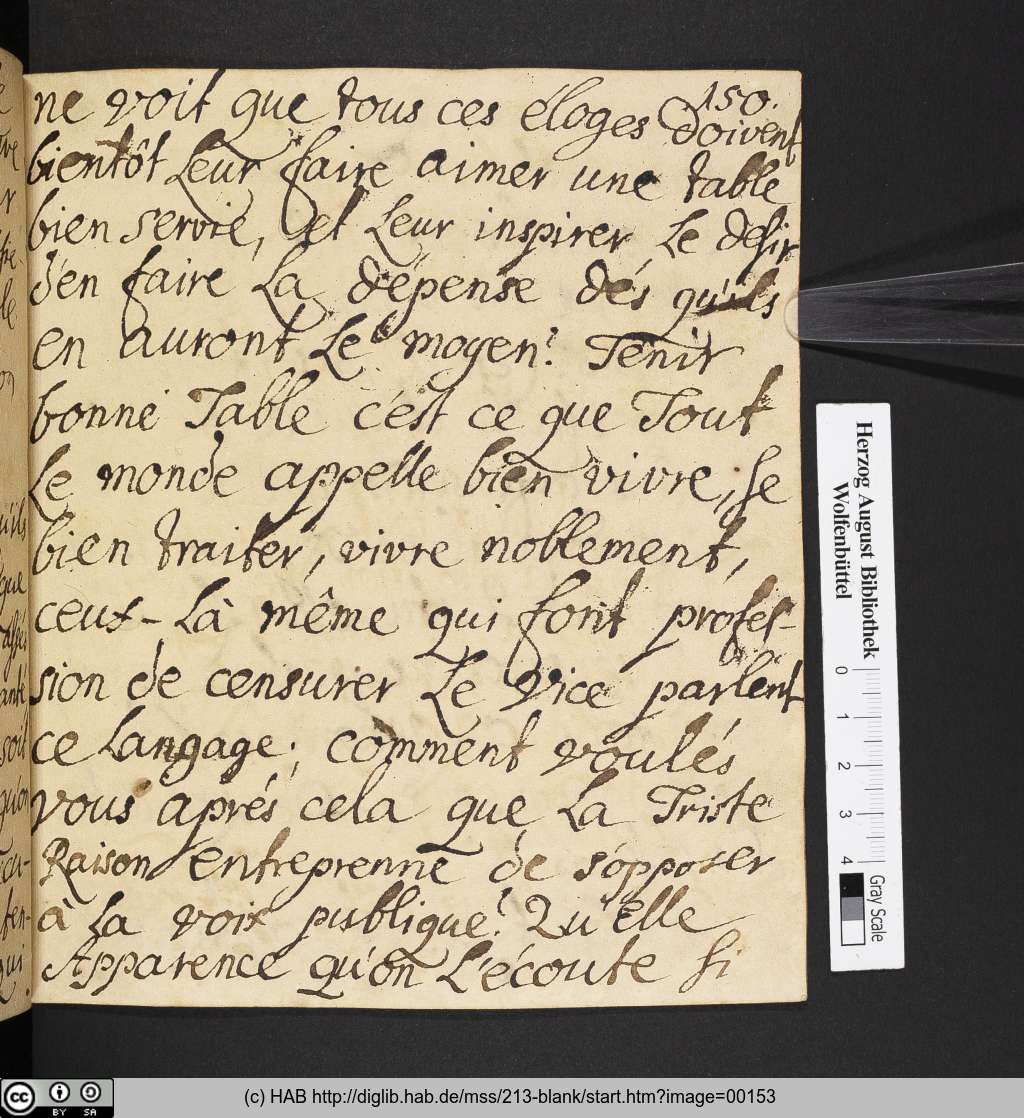 150.
ne voit que tous ces éloges doivent
bientôt leur faire aimer une table
bien servie, et leur inspirer le desir
d'en faire la dépense dés qu'ils
en auront le moyen? Tenir
bonne Table c'est ce que Tout
le monde appelle bien vivre, se
bien traiter, vivre noblement,
ceux-là même qui font profes-
sion de censurer le vice parlent
ce langage; comment voulés
vous aprés cela que la Triste
Raison entreprenne de s'opposer
à la voix publique? Qu'elle
Apparence qu'on l'écoute si
Herzog August Bibliothek
Wolfenbüttel
0 1 2 3 4
Gray Scale
cc BY SA
(c) HAB http://diglib.hab.de/mss/213-blank/start.htm?image=00153